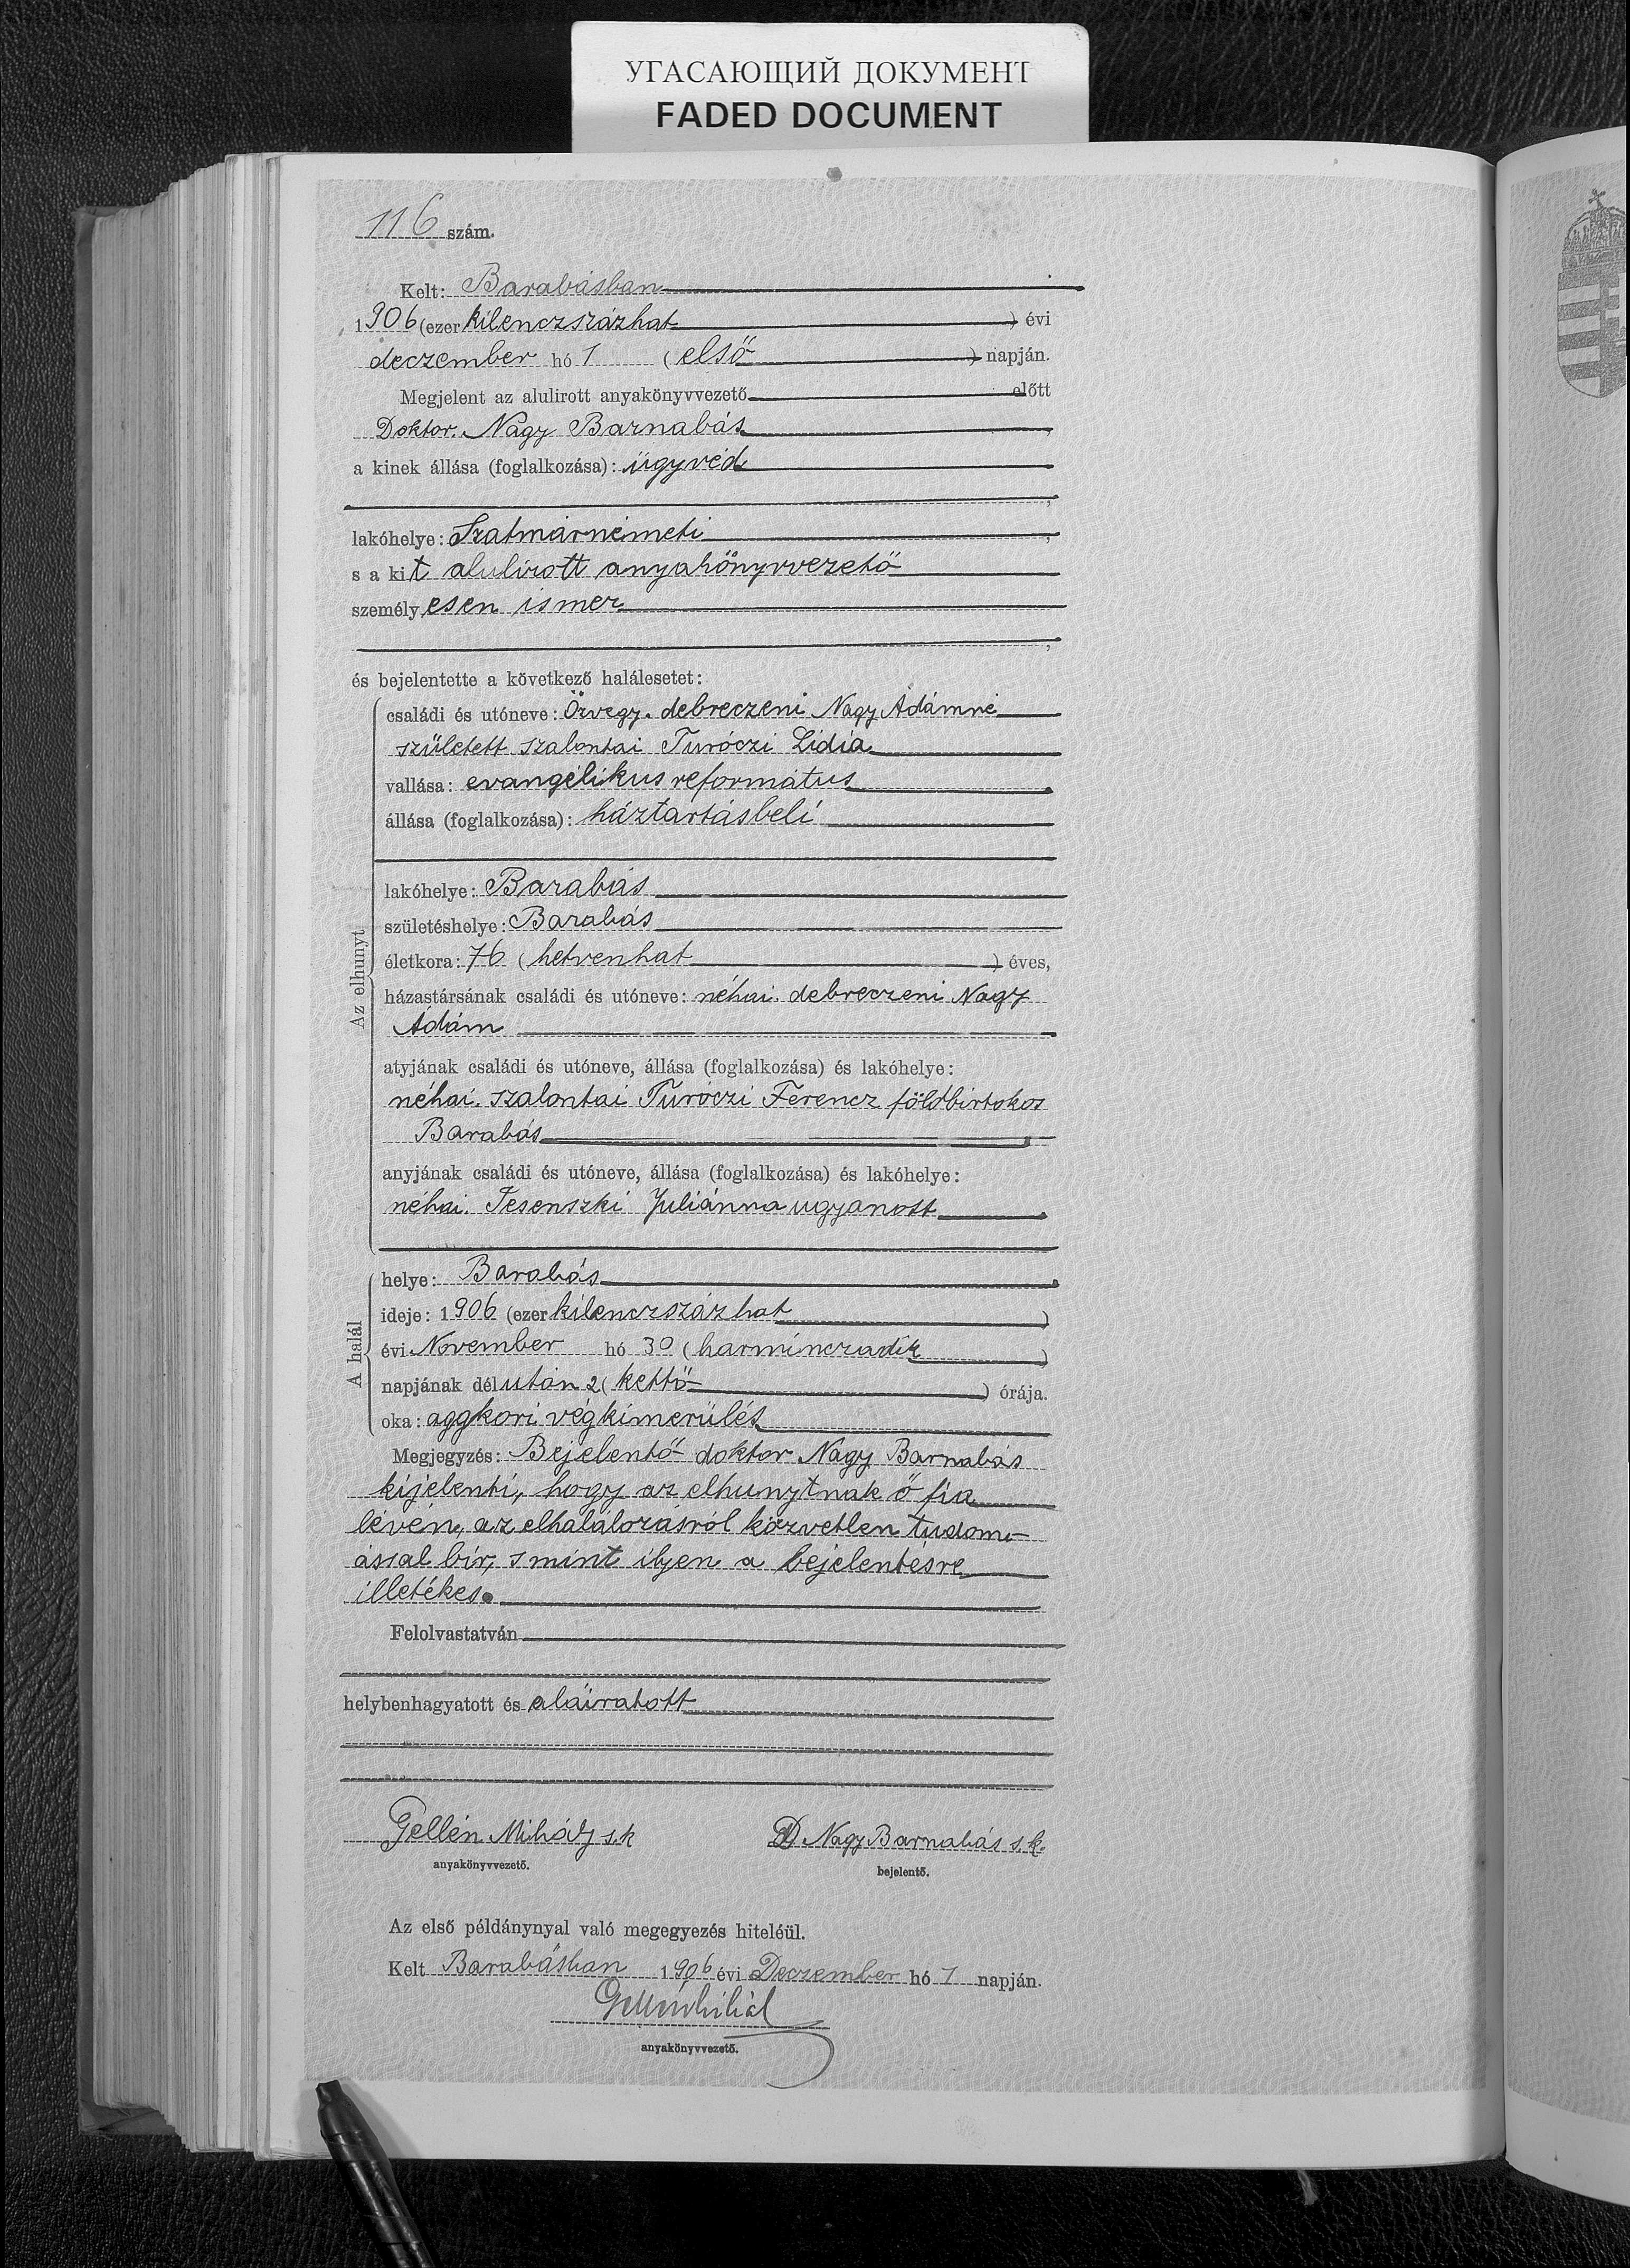 УГАСАЮЩИЙ ДОКУМЕНТ
FADED DOCUMENT
116 szám.
Kelt: Barabásban
1906 (ezer kilenczszázhat) évi
deczember hó 1 (első) napján.
Megjelent az alulirott anyakönyvvezető előtt
Doktor. Nagy Barnabás,
a kinek állása (foglalkozása): ügyvéd
,
lakóhelye: Szatmárnémeti,
s a kit alulírott anyakönyvvezető
személyesen ismer
,
és bejelentette a következő halálesetet:
Az elhunyt
családi és utóneve: Özvegy. debreczeni Nagy Ádámné
született szalontai Turóczi Lidia
vallása: evangélikus református,
állása (foglalkozása): háztartásbeli
lakóhelye: Barabás
születéshelye: Barabás
életkora: 76 (hetvenhat) éves,
házastársának családi és utóneve: néhai debreczeni Nagy
Ádám
atyjának családi és utóneve, állása (foglalkozása) és lakóhelye:
néhai. szalontai Turóczi Ferencz földbirtokos
Barabás,
anyjának családi és utóneve, állása (foglalkozása) és lakóhelye:
néhai. Jesenszki Juliánna ugyanott,
A halál
helye: Barabás,
ideje: 1906 (ezer kilenczszázhat)
évi November hó 30 (harminczadik)
napjának délután 2 (kettő) órája.
oka: aggkori végkimerülés
Megjegyzés: Bejelentő doktor Nagy Barnabás
kijelenti, hogy az elhunytnak ő fia
lévén, az elhalálozásról közvetlen tudom-
ással bír, s mint ilyen a bejelentésre
illetékes.
Felolvastatván
helybenhagyatott és aláiratott
Gellén Mihály s.k
D Nagy Barnabás s.k.
anyakönyvvezető.
bejelentő.
Az első példánynyal való megegyezés hiteléül.
Kelt Barabásban 1906 évi Deczember hó 1 napján.
Gellén Mihály
anyakönyvvezető.